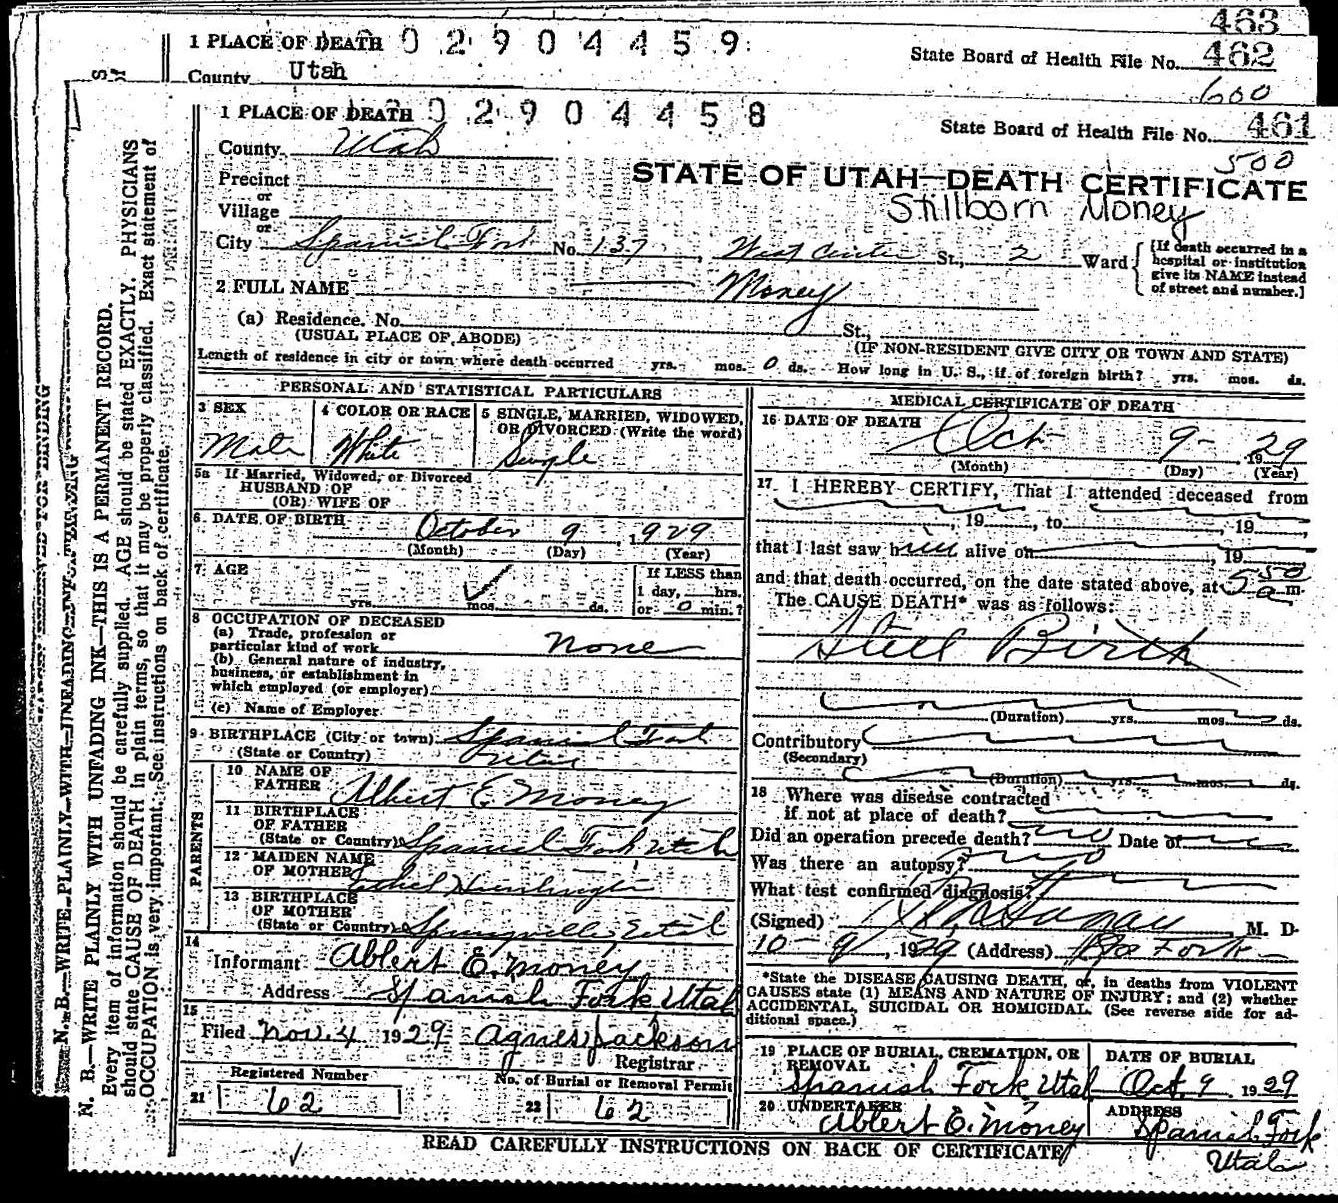 463
1 PLACE OF DEATH 0 2 9 0 4 4 5 9
State Board of Health File No. 462
County Utah
600
1 PLACE OF DEATH 0 2 9 0 4 4 5 8
State Board of Health File No. 461
County Utah
500
STATE OF UTAH—DEATH CERTIFICATE
Stillborn Money
Precinct
or
Village
or
City Spanish Fork No. 137, West Center St., 2 Ward
[If death occurred in a
hospital or institution
give its NAME instead
of street and number.]
2 FULL NAME Money
(a) Residence. No. St.,
(USUAL PLACE OF ABODE) (IF NON-RESIDENT GIVE CITY OR TOWN AND STATE)
Length of residence in city or town where death occurred yrs. mos. 0 ds. How long in U. S., if of foreign birth? yrs. mos. ds.
PERSONAL AND STATISTICAL PARTICULARS
3 SEX
Male
4 COLOR OR RACE
White
5 SINGLE, MARRIED, WIDOWED,
OR DIVORCED (Write the word)
Single
5a If Married, Widowed, or Divorced
HUSBAND OF
(OR) WIFE OF
6 DATE OF BIRTH October 9, 1929
(Month) (Day) (Year)
7 AGE
yrs. mos. ds.
If LESS than
1 day, hrs.
or 0 min.?
8 OCCUPATION OF DECEASED
(a) Trade, profession or
particular kind of work none
(b) General nature of industry,
business, or establishment in
which employed (or employer)
(c) Name of Employer
9 BIRTHPLACE (City or town) Spanish Fork
(State or Country) Utah
PARENTS
10 NAME OF
FATHER Albert E. Money
11 BIRTHPLACE
OF FATHER
(State or Country) Spanish Fork Utah
12 MAIDEN NAME
OF MOTHER Ethel Huntington
13 BIRTHPLACE
OF MOTHER
(State or Country) Springville, Utah
14
Informant Ablert E. Money
Address Spanish Fork Utah
15
Filed Nov. 4 1929 Agnes Jackson
Registrar
Registered Number
21 62
No. of Burial or Removal Permit
22 62
MEDICAL CERTIFICATE OF DEATH
16 DATE OF DEATH
Oct 9- 1929
(Month) (Day) (Year)
17 I HEREBY CERTIFY, That I attended deceased from
, 19 , to , 19
that I last saw him alive on , 19
and that death occurred, on the date stated above, at 5 50 a m.
The CAUSE DEATH* was as follows:
Still Birth
(Duration) yrs. mos. ds.
Contributory
(Secondary)
(Duration) yrs. mos. ds.
18 Where was disease contracted
if not at place of death?
Did an operation precede death? no Date of
Was there an autopsy? no
What test confirmed diagnosis?
(Signed) M. D.
10-9, 1929 (Address) Spa Fork
*State the DISEASE CAUSING DEATH, or, in deaths from VIOLENT
CAUSES state (1) MEANS AND NATURE OF INJURY; and (2) whether
ACCIDENTAL, SUICIDAL OR HOMICIDAL. (See reverse side for ad-
ditional space.)
19 PLACE OF BURIAL, CREMATION, OR
REMOVAL
Spanish Fork Utah
DATE OF BURIAL
Oct. 9 1929
20 UNDERTAKER
Ablert E. Money
ADDRESS
Spanish Fork
Utah
READ CAREFULLY INSTRUCTIONS ON BACK OF CERTIFICATE
MARGIN RESERVED FOR BINDING
N. B.—WRITE PLAINLY WITH UNFADING INK
N. B.—WRITE PLAINLY WITH UNFADING INK—THIS IS A PERMANENT RECORD.
Every item of information should be carefully supplied. AGE should be stated EXACTLY. PHYSICIANS
should state CAUSE OF DEATH in plain terms, so that it may be properly classified. Exact statement of
OCCUPATION is very important. See instructions on back of certificate.